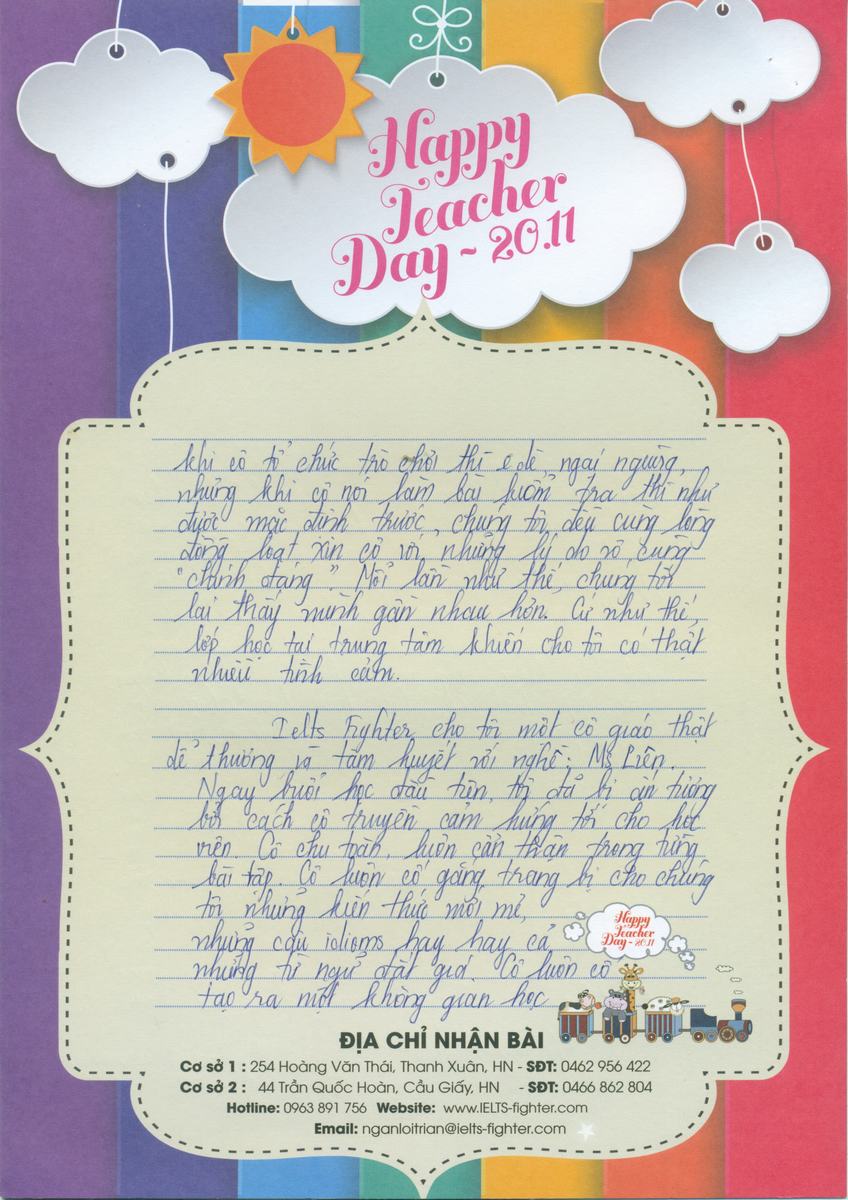 Happy
Teacher
Day ~ 20.11
khi cô tổ chức trò chơi thì e dè, ngại ngùng,
nhưng khi cô nói làm bài kiểm tra thì như
được mặc định trước, chúng tôi đều cùng lòng
đồng loạt xin cô với những lý do vô cùng
"chính đáng". Mỗi lần như thế, chúng tôi
lại thấy mình gần nhau hơn. Cứ như thế,
lớp học tại trung tâm khiến cho tôi có thật
nhiều tình cảm.
Ielts Fighter cho tôi một cô giáo thật
dễ thương và tâm huyết với nghề: Ms Liên.
Ngay buổi học đầu tiên, tôi đã bị ấn tượng
bởi cách cô truyền cảm hứng tới cho học
viên. Cô chu toàn, luôn cẩn thận trong từng
bài tập. Cô luôn cố gắng trang bị cho chúng
tôi những kiến thức mới mẻ,
những câu idioms hay hay cả
những từ ngữ đắt giá. Cô luôn cố
tạo ra một không gian học
Happy
Teacher
Day ~ 20.11
ĐỊA CHỈ NHẬN BÀI
Cơ sở 1 : 254 Hoàng Văn Thái, Thanh Xuân, HN - SĐT: 0462 956 422
Cơ sở 2 : 44 Trần Quốc Hoàn, Cầu Giấy, HN - SĐT: 0466 862 804
Hotline: 0963 891 756 Website: www.IELTS-fighter.com
Email: nganloitrian@ielts-fighter.com